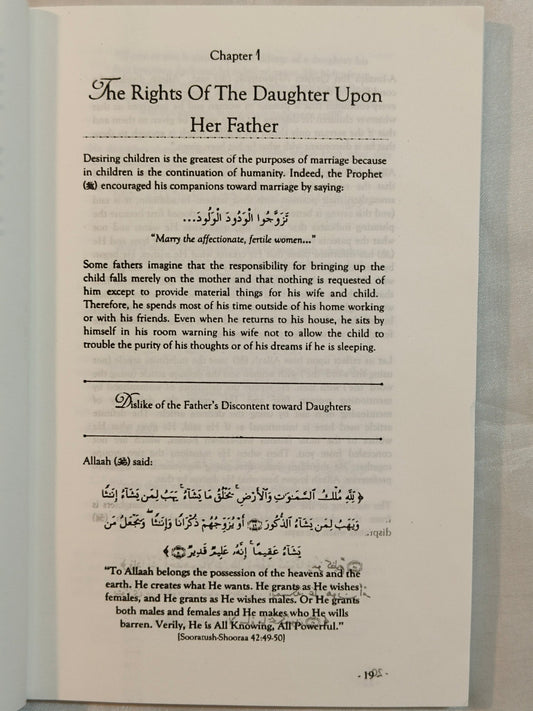 Chapter 1
The Rights Of The Daughter Upon
Her Father
Desiring children is the greatest of the purposes of marriage because
in children is the continuation of humanity. Indeed, the Prophet
(ﷺ) encouraged his companions toward marriage by saying:
تَزَوَّجُوا الْوَدُودَ الْوَلُودَ...
"Marry the affectionate, fertile women..."
Some fathers imagine that the responsibility for bringing up the
child falls merely on the mother and that nothing is requested of
him except to provide material things for his wife and child.
Therefore, he spends most of his time outside of his home working
or with his friends. Even when he returns to his house, he sits by
himself in his room warning his wife not to allow the child to
trouble the purity of his thoughts or of his dreams if he is sleeping.
Dislike of the Father's Discontent toward Daughters
Allaah (ﷻ) said:
﴿ لِلَّهِ مُلْكُ السَّمَوَتِ وَالْأَرْضِ يَخْلُقُ مَا يَشَآءُ يَهَبُ لِمَن يَشَآءُ إِنَٰثًا
وَيَهَبُ لِمَن يَشَآءُ الذُّكُورَ ﴿٤٩﴾ أَوْ يُزَوِّجُهُمْ ذُكْرَانًا وَإِنَٰثًا وَيَجْعَلُ مَن
يَشَآءُ عَقِيمًا إِنَّهُ عَلِيمٌ قَدِيرٌ ﴿٥٠﴾ ﴾
"To Allaah belongs the possession of the heavens and the
earth. He creates what He wants. He grants as He wishes
females, and He grants as He wishes males. Or He grants
both males and females and He makes who He wills
barren. Verily, He is All Knowing, All Powerful."
[Sooratush-Shooraa 42:49-50]
- 19 -